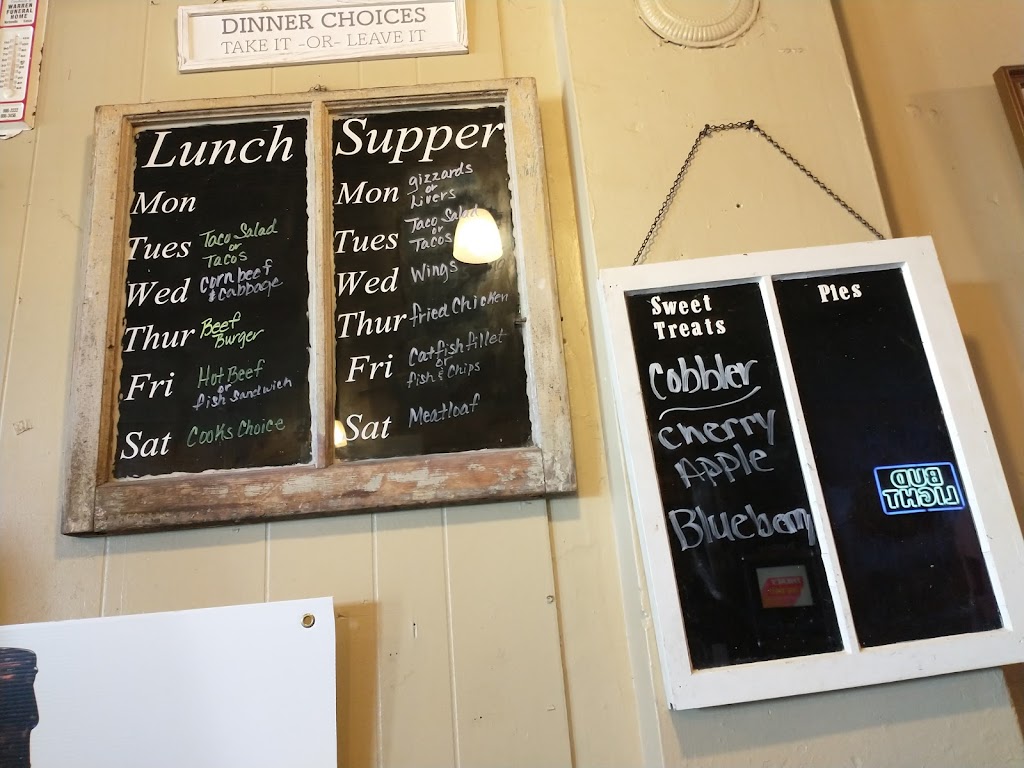 WARREN
FUNERAL
HOME
DINNER CHOICES
TAKE IT -OR- LEAVE IT
Lunch
Mon
Tues Taco Salad
or
Tacos
Wed Corn beef
& Cabbage
Thur Beef
Burger
Fri Hot Beef
or
fish sandwich
Sat Cooks Choice
Supper
Mon gizzards
or
Livers
Tues Taco Salad
or
Tacos
Wed Wings
Thur fried Chicken
Fri Catfish fillet
or
fish & Chips
Sat Meatloaf
Sweet
Treats
Cobbler
Cherry
Apple
Blueberry
Pies
BUD
LIGHT